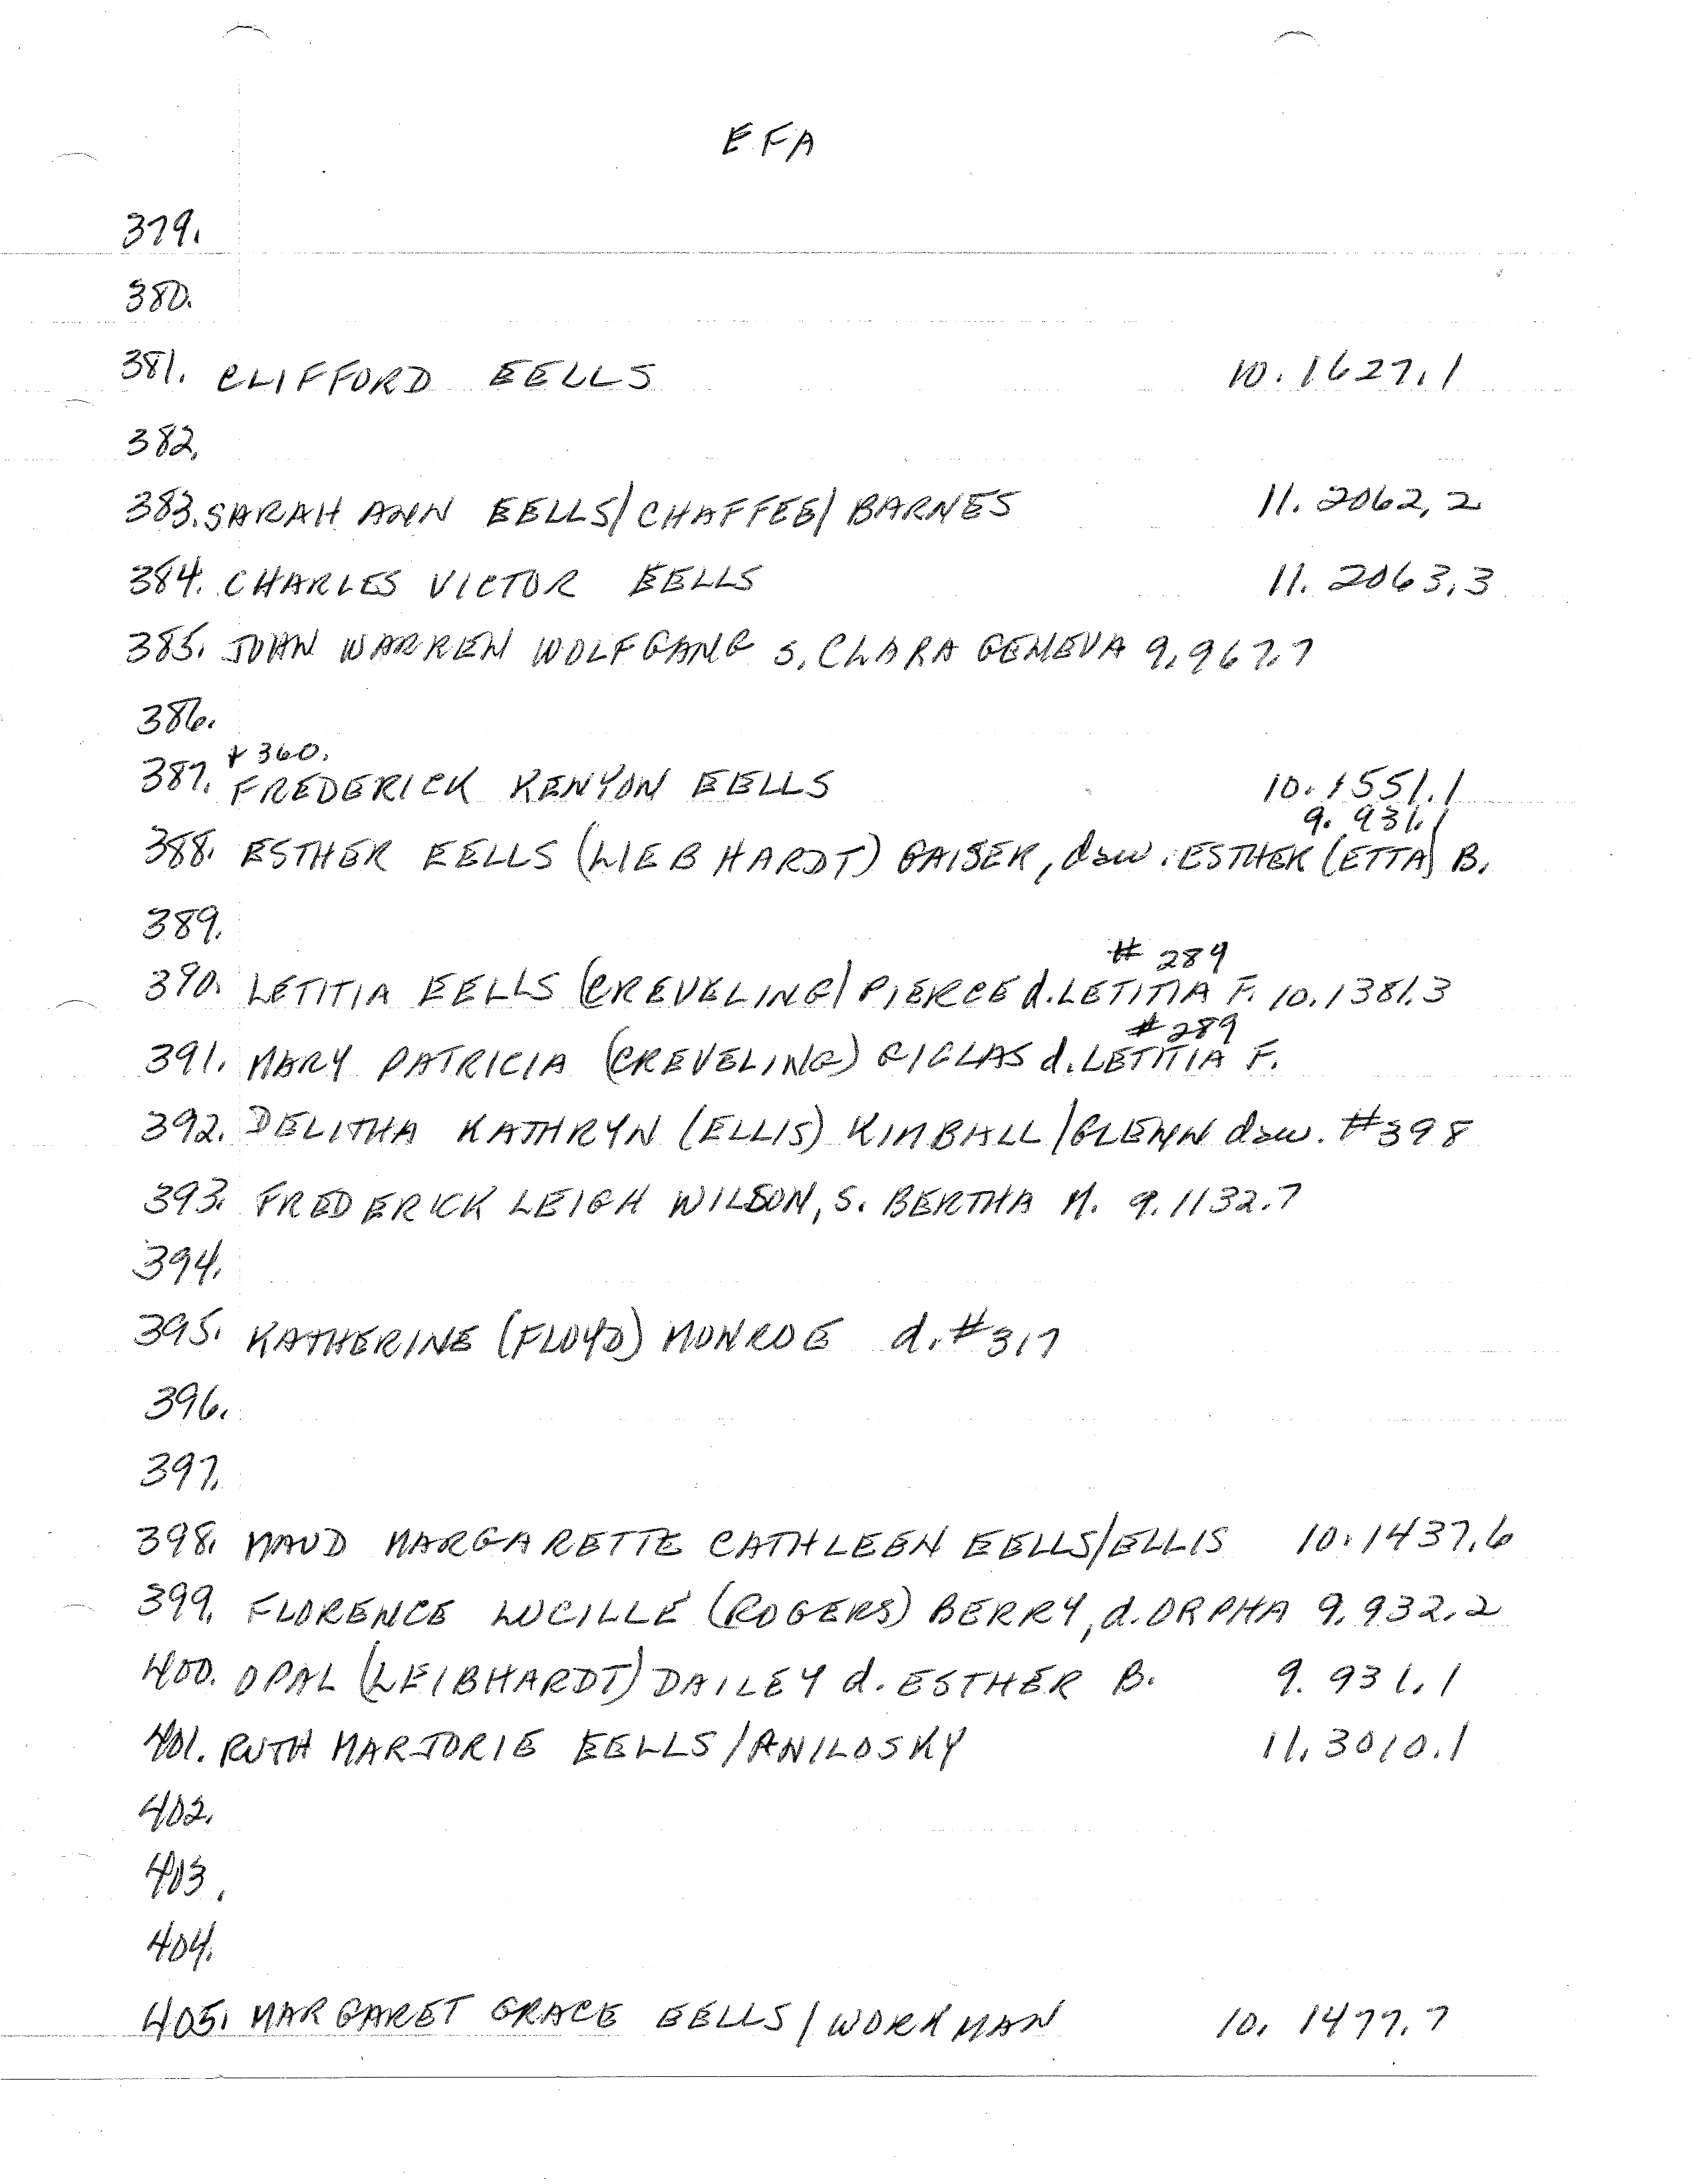 EFA
379.
380.
381. CLIFFORD EELLS 10.1627.1
382.
383. SARAH ANN EELLS/CHAFFEE/BARNES 11.2062.2
384. CHARLES VICTOR EELLS 11.2063.3
385. JOHN WARREN WOLFGANG S. CLARA GENEVA 9.967.7
386.
+ 360.
387. FREDERICK KENYON EELLS 10.1551.1
9.931.1
388. ESTHER EELLS (LIEBHARDT) GAISER, dau. ESTHER (ETTA) B.
389.
# 289
390. LETITIA EELLS (CREVELING/PIERCE d. LETITIA F. 10.1381.3
#289
391. MARY PATRICIA (CREVELING) GIGLAS d. LETITIA F.
392. DELITHA KATHRYN (ELLIS) KIMBALL/GLENN dau. #398
393. FREDERICK LEIGH WILSON, S. BERTHA M. 9.1132.7
394.
395. KATHERINE (FLOYD) MONROE d. #317
396.
397.
398. MAUD MARGARETTE CATHLEEN EELLS/ELLIS 10.1437.6
399. FLORENCE LUCILLE (ROGERS) BERRY, d. ORPHA 9.932.2
400. OPAL (LEIBHARDT) DAILEY d. ESTHER B. 9.931.1
401. RUTH MARJORIE EELLS/ANILOSKY 11.3010.1
402.
403.
404.
405. MARGARET GRACE EELLS/WORKMAN 10.1477.7